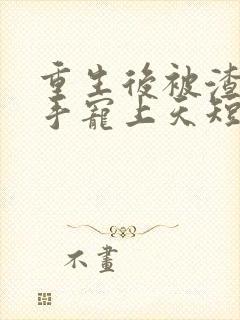 重生後被渣
手寵上天短
不畫